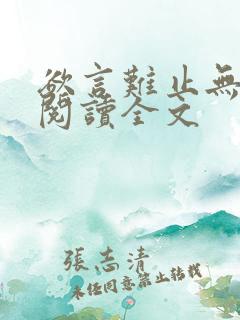 欲言難止無
閱讀全文
張志清
未經同意禁止轉載